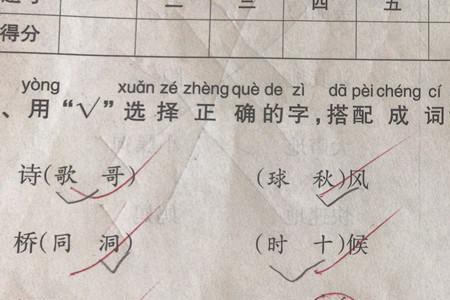 二 三 四 五
得分
yòng xuǎn zé zhèng què de zì dā pèi chéng cí
、用“√”选择正确的字,搭配成词
诗(歌 哥) (球 秋)风
桥(同 洞) (时 十)候